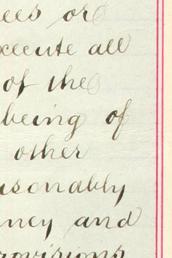 ees or
xecute all
of the
being of
other
asonably
ney and
rovisions